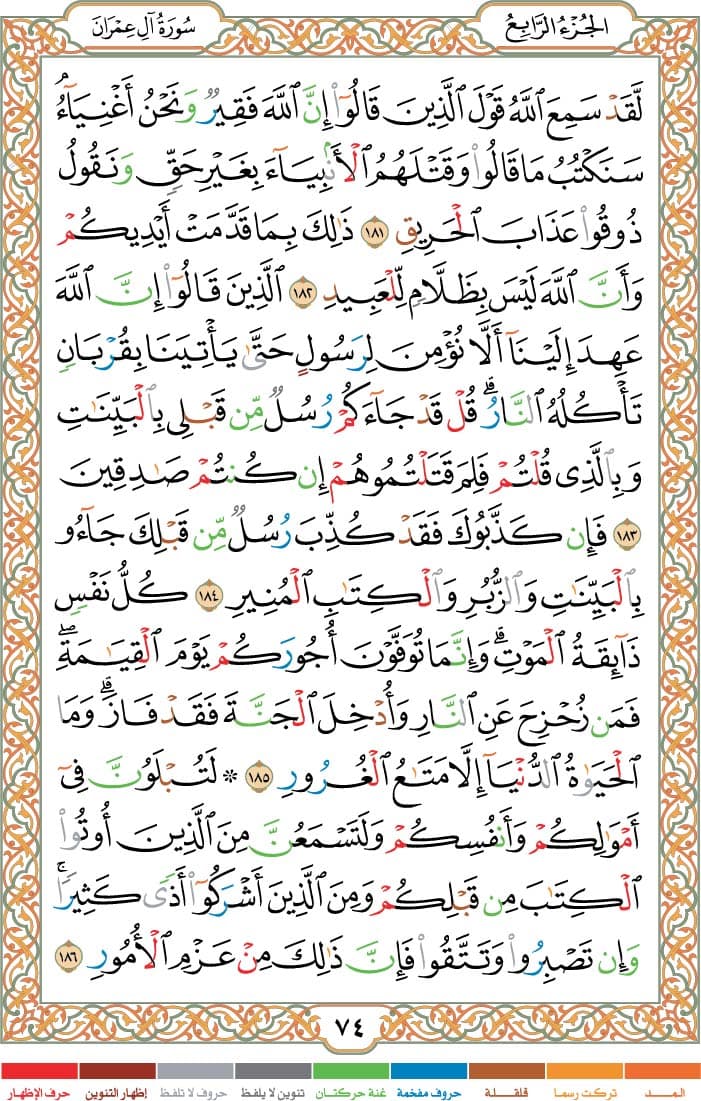 الجُزْءُ الرَّابِعُ
سُورَةُ آلِ عِمْرَان
لَّقَدْ سَمِعَ ٱللَّهُ قَوْلَ ٱلَّذِينَ قَالُوٓا۟ إِنَّ ٱللَّهَ فَقِيرٌ وَنَحْنُ أَغْنِيَآءُ ۘ
سَنَكْتُبُ مَا قَالُوا۟ وَقَتْلَهُمُ ٱلْأَنۢبِيَآءَ بِغَيْرِ حَقٍّ وَنَقُولُ
ذُوقُوا۟ عَذَابَ ٱلْحَرِيقِ ١٨١ ذَٰلِكَ بِمَا قَدَّمَتْ أَيْدِيكُمْ
وَأَنَّ ٱللَّهَ لَيْسَ بِظَلَّامٍ لِّلْعَبِيدِ ١٨٢ ٱلَّذِينَ قَالُوٓا۟ إِنَّ ٱللَّهَ
عَهِدَ إِلَيْنَآ أَلَّا نُؤْمِنَ لِرَسُولٍ حَتَّىٰ يَأْتِيَنَا بِقُرْبَانٍ
تَأْكُلُهُ ٱلنَّارُ ۗ قُلْ قَدْ جَآءَكُمْ رُسُلٌ مِّن قَبْلِى بِٱلْبَيِّنَٰتِ
وَبِٱلَّذِى قُلْتُمْ فَلِمَ قَتَلْتُمُوهُمْ إِن كُنتُمْ صَٰدِقِينَ
١٨٣ فَإِن كَذَّبُوكَ فَقَدْ كُذِّبَ رُسُلٌ مِّن قَبْلِكَ جَآءُو
بِٱلْبَيِّنَٰتِ وَٱلزُّبُرِ وَٱلْكِتَٰبِ ٱلْمُنِيرِ ١٨٤ كُلُّ نَفْسٍ
ذَآئِقَةُ ٱلْمَوْتِ ۗ وَإِنَّمَا تُوَفَّوْنَ أُجُورَكُمْ يَوْمَ ٱلْقِيَٰمَةِ ۖ
فَمَن زُحْزِحَ عَنِ ٱلنَّارِ وَأُدْخِلَ ٱلْجَنَّةَ فَقَدْ فَازَ ۗ وَمَا
ٱلْحَيَوٰةُ ٱلدُّنْيَآ إِلَّا مَتَٰعُ ٱلْغُرُورِ ١٨٥ ۞ لَتُبْلَوُنَّ فِىٓ
أَمْوَٰلِكُمْ وَأَنفُسِكُمْ وَلَتَسْمَعُنَّ مِنَ ٱلَّذِينَ أُوتُوا۟
ٱلْكِتَٰبَ مِن قَبْلِكُمْ وَمِنَ ٱلَّذِينَ أَشْرَكُوٓا۟ أَذًى كَثِيرًا ۚ
وَإِن تَصْبِرُوا۟ وَتَتَّقُوا۟ فَإِنَّ ذَٰلِكَ مِنْ عَزْمِ ٱلْأُمُورِ ١٨٦
٧٤
المـــد
تركت رسما
قلقـــلة
حروف مفخمة
غنة حركتـان
تنوين لا يلفظ
حروف لا تلفظ
إظهار التنوين
حرف الإظهار